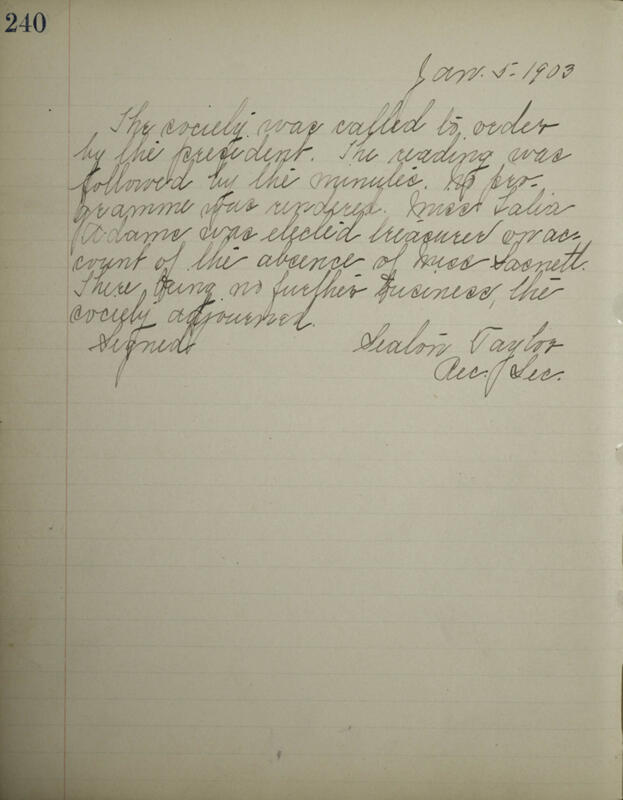 240
Jan. 5 - 1903
The society was called to order
by the president. The reading was
followed by the minutes. No pro-
gramme was rendered. Miss Lalia
Adams was elected treasurer on ac-
count of the absence of Miss Sasnett.
There being no further business, the
society adjourned.
Signed. Seaton Taylor
Rec. Sec.